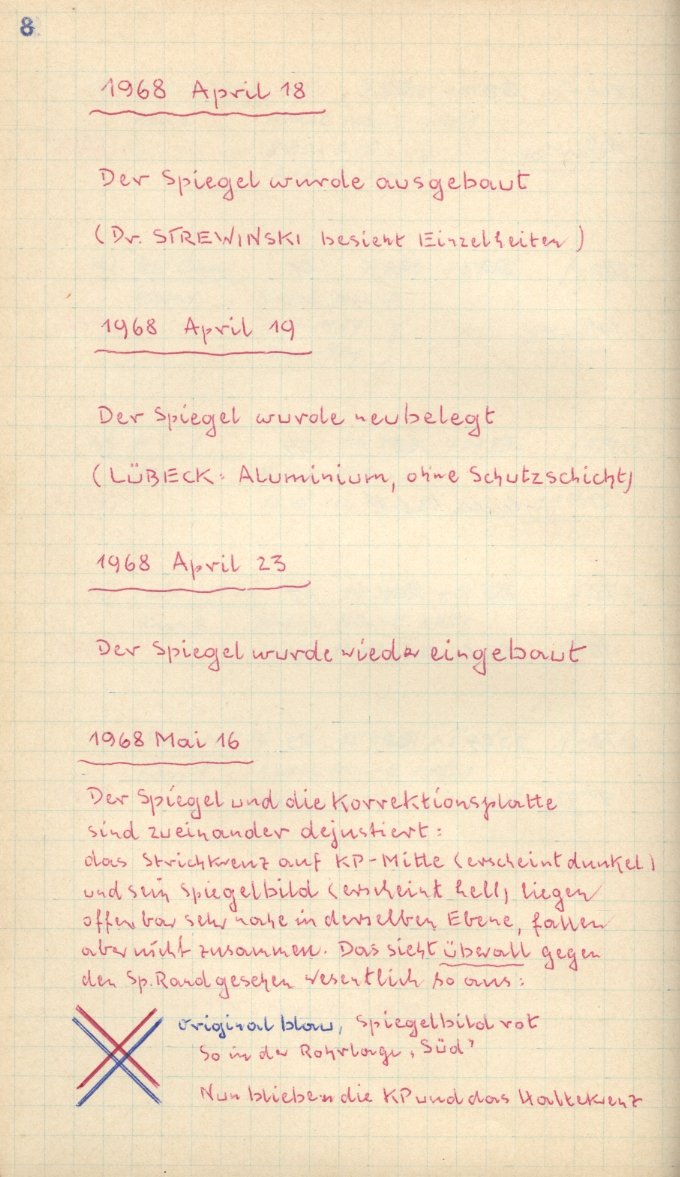 8
1968 April 18
Der Spiegel wurde ausgebaut
(Dr. STREWINSKI besieht Einzelheiten)
1968 April 19
Der Spiegel wurde neubelegt
(LÜBECK: Aluminium, ohne Schutzschicht)
1968 April 23
Der Spiegel wurde wieder eingebaut
1968 Mai 16
Der Spiegel und die Korrektionsplatte
sind zueinander dejustiert:
das Strichkreuz auf KP-Mitte (erscheint dunkel)
und sein Spiegelbild (erscheint hell) liegen
offenbar sehr nahe in derselben Ebene, fallen
aber nicht zusammen. Das sieht überall gegen
den Sp.Rand gesehen wesentlich so aus:
original blau, Spiegelbild rot
So in der Rohrlage "Süd"
Nun blieben die KP und das Haltekreuz